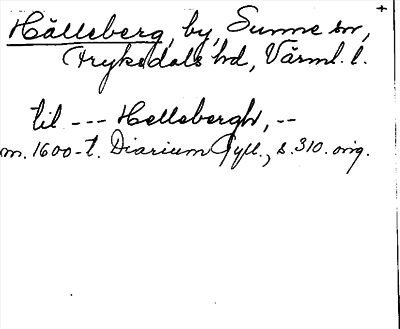 Hälleberg, by, Sunne sn, +
Fryksdals hd, Värml. l.
til --- Hellebergh, --
m. 1600-t. Diarium Gyll., s. 310. orig.